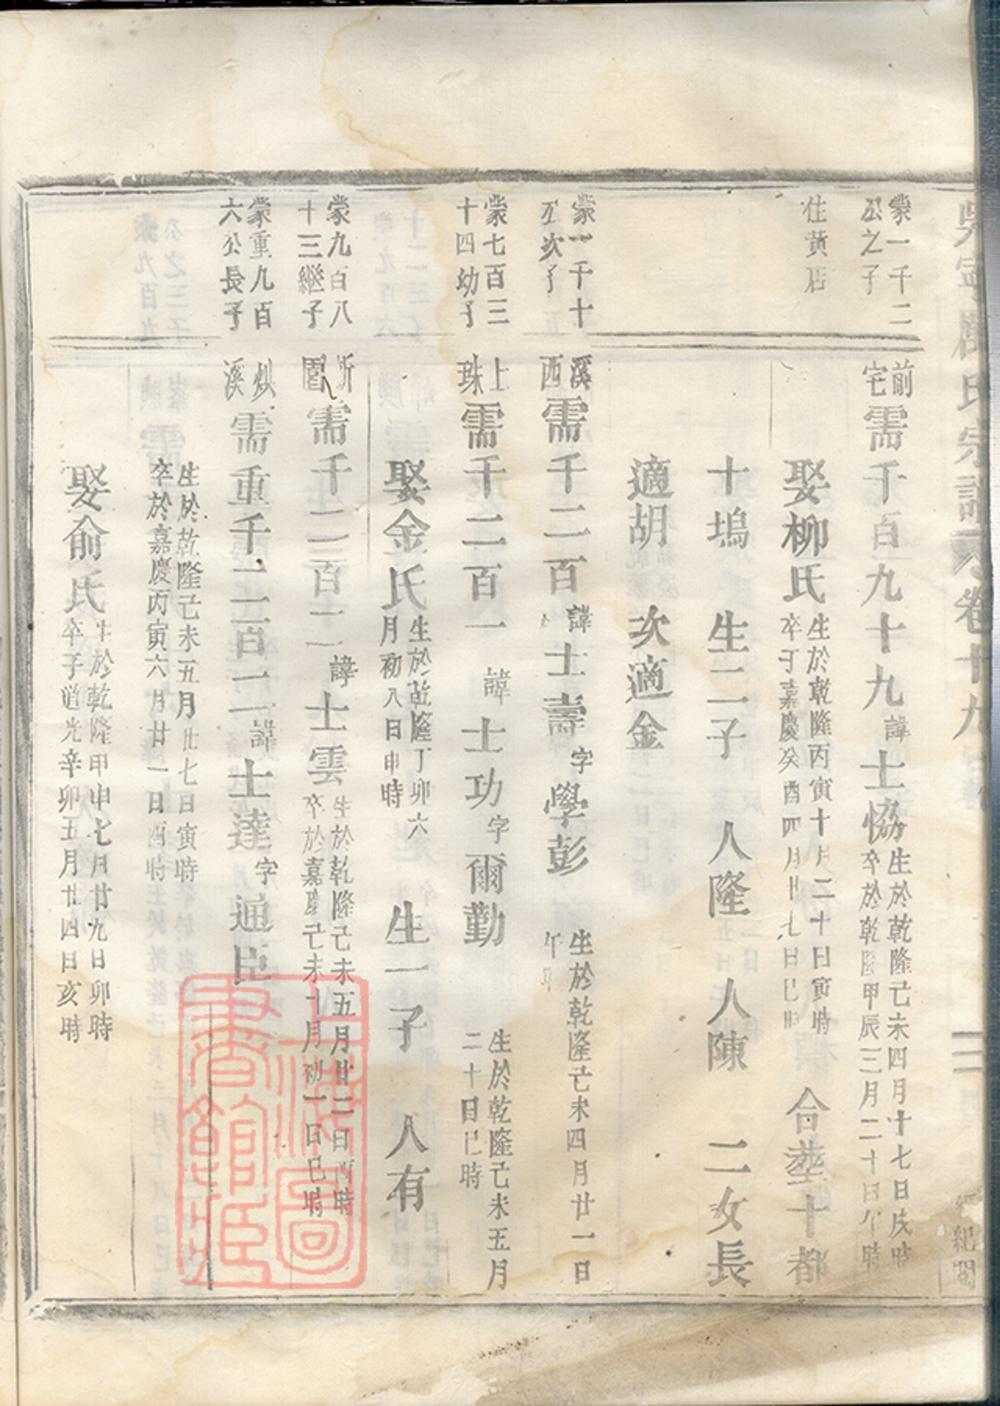 氏宗譜 卷十九
紀閣
蒙一千二
公之子
前
宅
需千百九十九 諱 士協
生於乾隆己未四月十七日戌時
卒於乾隆甲辰三月二十日午時
住黃店
娶柳氏
生於乾隆丙寅十月二十日寅時
卒于嘉慶癸酉四月廿七日巳時
合葬十都
十塢 生二子 人隆 人陳 二女長
適胡 次適金
蒙一千十
公次子
溪
西
需千二百 諱 士壽 字 學彭
生於乾隆己未四月廿一日
午時
蒙七百三
十四幼子
上
珠
需千二百一 諱 士功 字 爾勤
生於乾隆己未五月
二十日巳時
娶金氏
生於乾隆丁卯六
月初八日申時
生一子 人有
蒙九百八
十三繼子
需千二百二 諱 士雲
生於乾隆己未五月廿二日酉時
卒於嘉慶己未十月初一日巳時
蒙重九百
六公長子
溪
需重千二百二 諱 士達 字 通臣
生於乾隆己未五月廿七日寅時
卒於嘉慶丙寅六月廿一日酉時
娶俞氏
生於乾隆甲申七月廿九日卯時
卒于道光辛卯五月廿四日亥時
上海圖書館藏